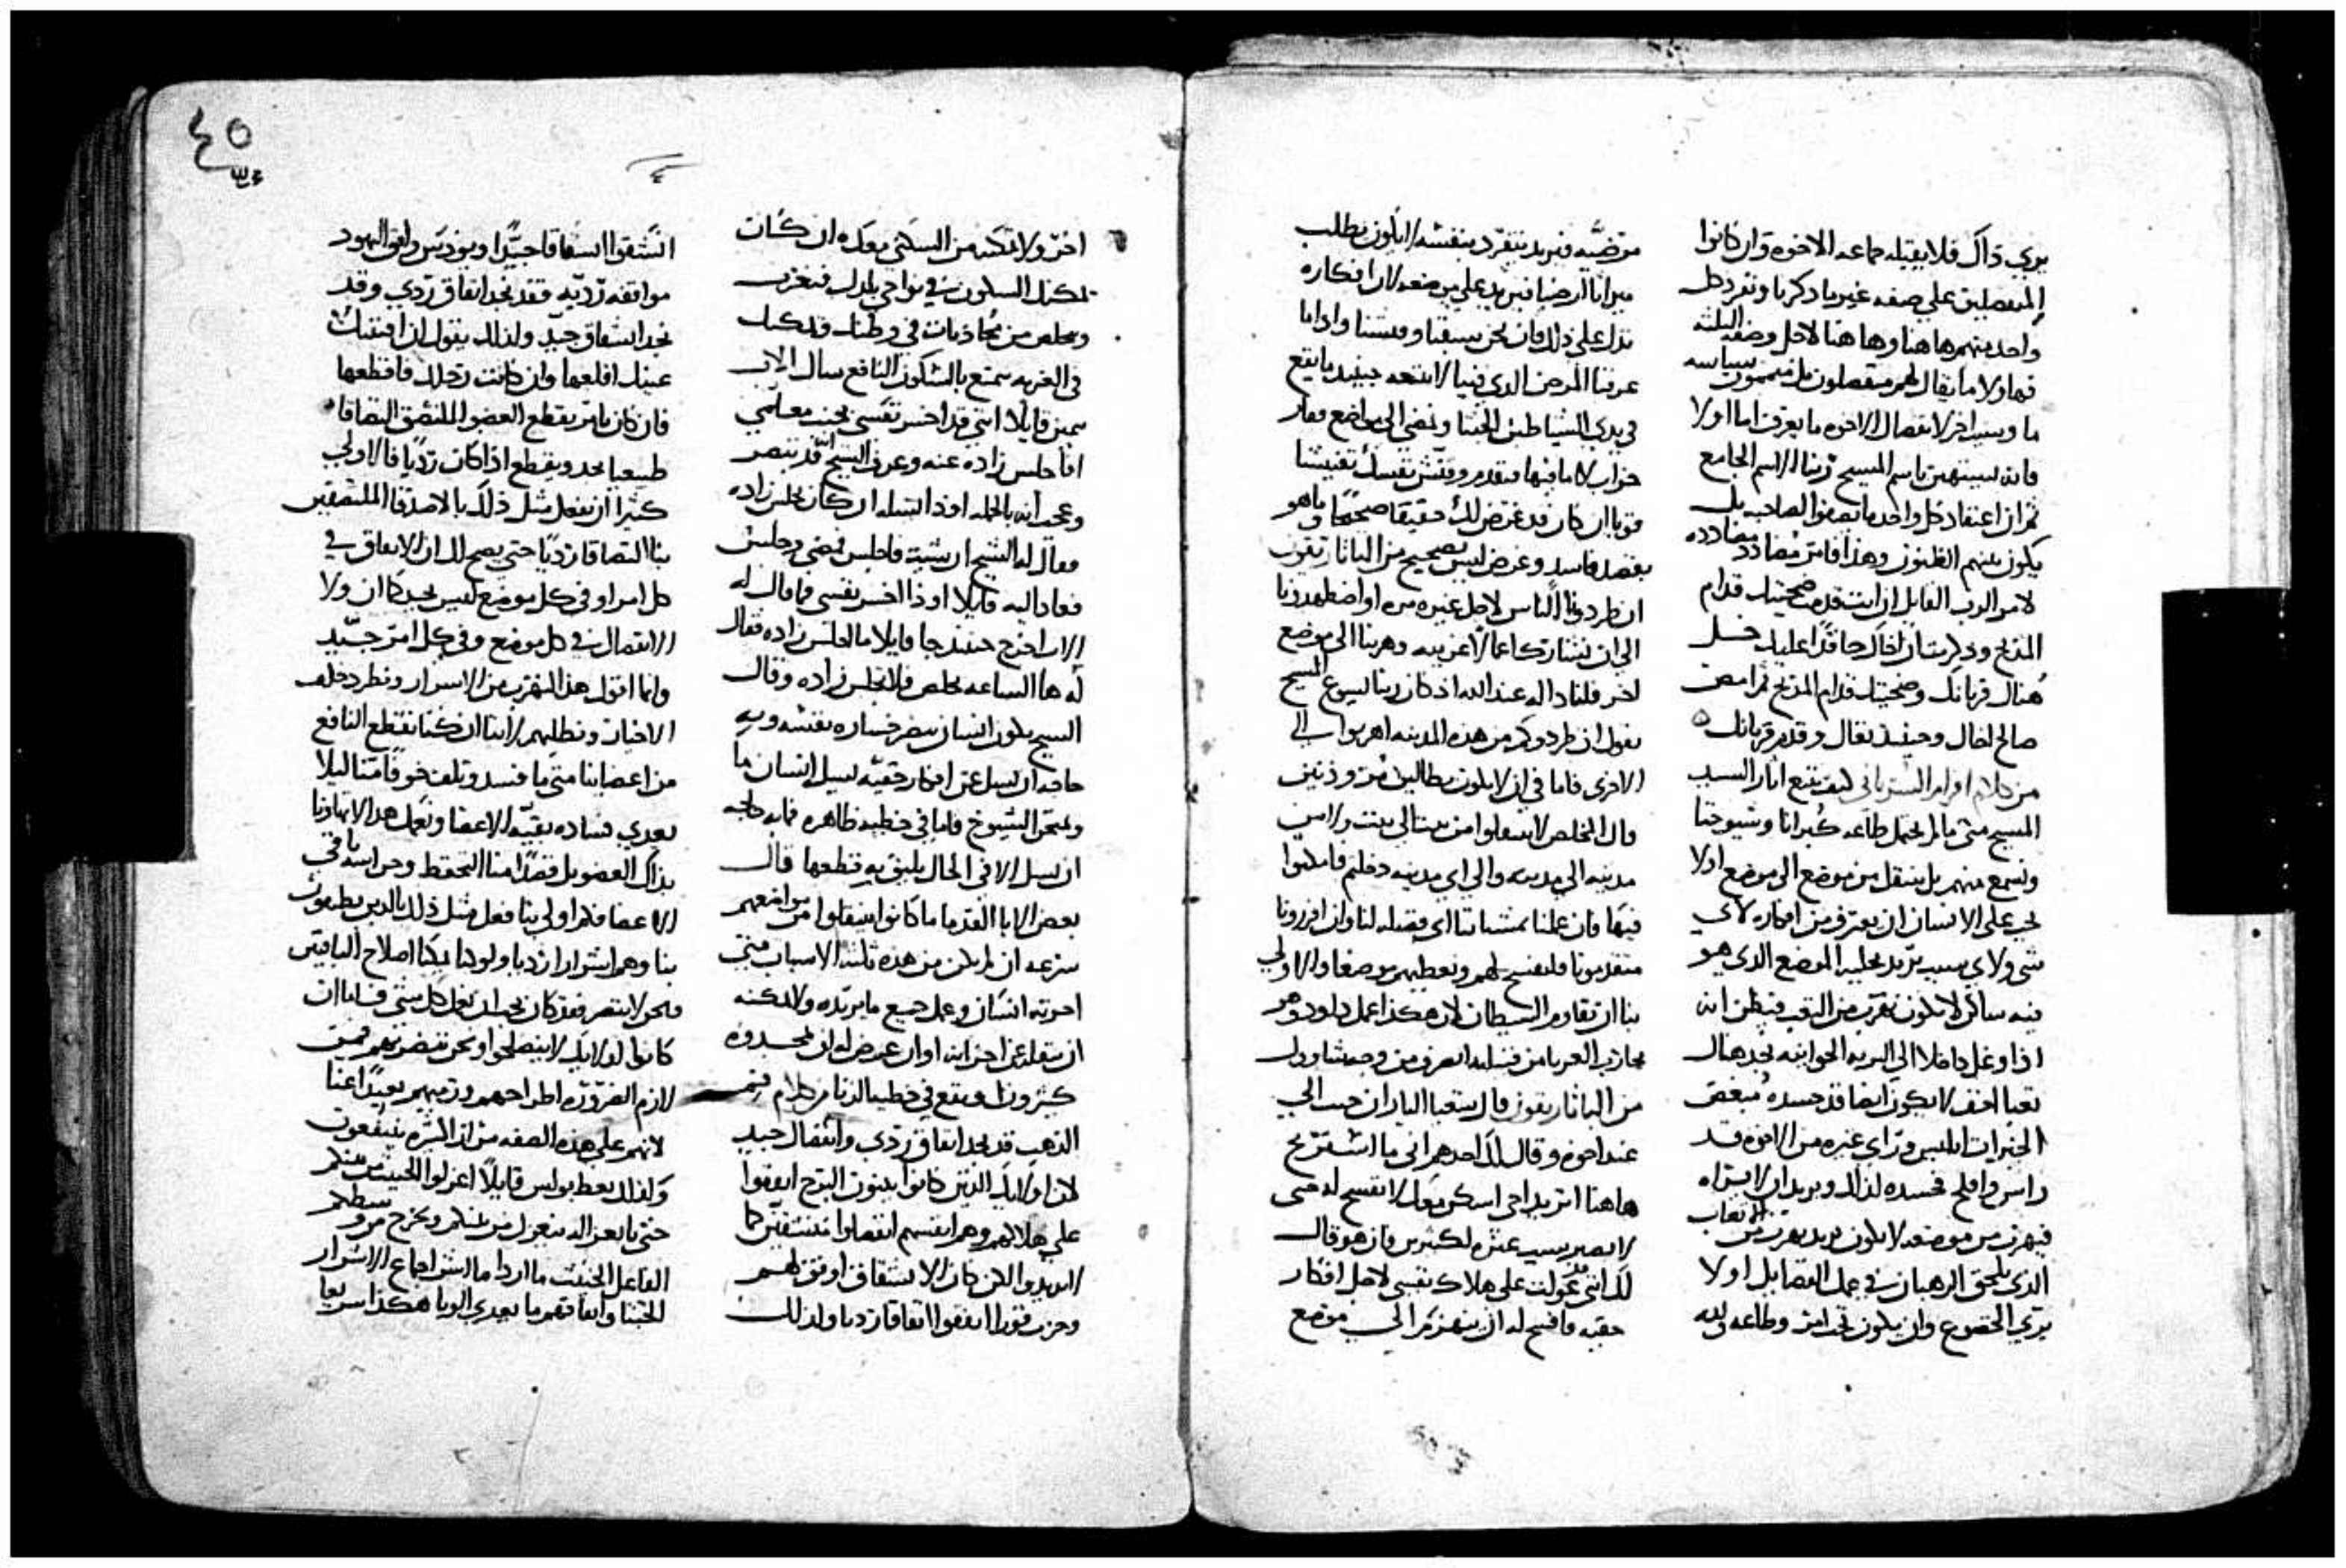 يري ذاك فلا يقبله جماعه الاخوه وان كانوا
المنفصلين علي صفه غير ما ذكرنا وتفرد كل
واحد منهم هاهنا وهاهنا لاجل وصفه
فهاولا ما يقال لهم منفصلون بل
ما وسبب اخر لانفصال الاخوه ما يعرف اما اولا
فانه يستهين باسم المسيح ربنا الاسم الجامع
ثم ان اعتقاد كل واحد ما يصفوا لصاحبه بل
يكون بينهم الظنون وهذا فامر مضادد
لامر الرب القايل ان انت قدمت ضحيتك قدام
المذبح وذكرت ان اخاك حاقدا عليك خل
هناك قربانك وضحيتك قدام المذبح ثم امض
صالح اخاك وحينيذ تعال وقدم قربانك
من كلام افرام السرياني كيف نتبع اثار السيد
المسيح متي ما لم نحمل طاعه كبرانا وشيوخنا
ونسمع منهم بل ننتقل من موضع الي موضع اولا
يجب علي الانسان ان يعترف من افكاره لاي
شي ولاي سبب يريد يخليه الموضع الذي هو
فيه ساكن لا يكون يهرب من التعب فيظن انه
اذا وغل داخلا الي البريه الجوانيه يجد هناك
تعبا اخف لا يكون ايضا قد حسده مبغض
الخيرات ابليس وراي غيره من الاخوه قد
راس وافلح فحسده لذلك ويريد ان لا يراه
فيهرب من موضعه لا يكون يريد يهرب من الاتعاب
الذي يلحق الرهبان في عمل الفضايل اولا
يري الخضوع وان يكون تحت امر وطاعه لله
مرضيه فيريد يتفرد بنفسه لا يكون يطلب
ميراثا ارضيا فيريد يخلي من ضعه لان افكاره
تدل علي ذلك فان نحن سبقنا وفتشنا واذا ما
عرفنا المرض الذي فينا لا نتجه حينيذ ما نقع
في يدي الشياطين الخبثا ونمضي الي مواضع قفار
خراب لا ما فيها فتقدم وفتش نفسك تفتيشا
قويا ان كان قد عرض لك حقيقا صحيحا وما هو
بقصد فاسد وغرض ليس بصحيح من الباتاريقون
ان طردونا الناس لاجل عيره مره او اضطهدونا
الي ان نشارك اعمالا غريبه وهربنا الي موضع
اخر فلنا داله عند الله اذ كان ربنا يسوع المسيح
يقول ان طردوكم من هذه المدينه اهربوا الي
الاخري فاما في ان لا يكون مطالبين
قال المخلص لا تنتقلوا من بيت الي بيت ولا من
مدينه الي مدينه والي اي مدينه دخلتم فامكثوا
فيها فان علنا بمشياتنا اي فضيله لنا وان افرزونا
متقدمونا فلنفسح لهم ونعطيهم موضعا والاولي
بنا ان نقاوم الشيطان لان هكذا عمل داود وهو
محارب الغربا من قبيله اعرف من وحش شاول
من الباتاريقون قال اشعيا البار ان حيث الي
عند اخوه وقال لك احدهم اني ما استريح
هاهنا اتريد اجي اسكن معك لا تفسح له حتي
لا تصير سبب عثره لكثيرين فان هو قال
لك انني قد عولت علي هلاك نفسي لاجل افكار
حقيه فافسح له ان ينهزم الي موضع
اخر ولا تمكنه من السكني معك ان كان
يمكنك السكون في نواحي بلدك فتغرب
وتخلص من مجاذبات في وطنك فلكيما
في الغربه تتمتع بالسكون النافع سال الاب
بيمين قايلا انني قد اخسر نفسي بحيث معلمي
افاجلس زاده عنده وعرف الشيخ انه قد تضرر
وعجب انه بالجمله اوذا يساله ان كان يجلس زاده
فقال له الشيخ ان شيت فاجلس فمضي وجلس
فعاد اليه قايلا اوذا اخسر نفسي فما قال له
الاب اخرج حينيذ جا قايلا ما اجلس زاده فقال
له ها الساعه تخلص فلا تجلس زاده وقال
الشيخ يكون انسان يبصر خساره نفسه وبه
حاجه ان يسال عن افكار خفيه يسل انسان ما
ويمتحن الشيوخ فاما في خطيه ظاهره فما به حاجه
ان يسل الا في الحال يليق به قطعها قال
بعض الابا القدما ما كانوا ينتقلوا من مواضعهم
بسرعه ان لم يكن من هذه ثلثه الاسباب متي
احزنه انسان وعمل جميع ما يرتده ولا يمكنه
ان يتقلع عن احزانه او ان عرض له ان يمجدوه
كثيرون او يقع في خطيه الزنا من كلام فم
الذهب قد نجد اتفاق ردي وانفصال جيد
لان اوليك الذين كانوا يبنون البرج اتفقوا
علي هلاكهم وهم انفسهم انفصلوا منشقين كما
لا يريدوا لكن كان الانشقاق اوفق لهم
وحزب قورا اتفقوا اتفاقا رديا ولذلك
انشقوا انشقاقا جيدا ويوذس وافق اليهود
موافقه رديه فقد نجد اتفاق ردي وقد
نجد انشقاق جيد ولذلك يقول ان افتنتك
عينك اقلعها وان كانت رجلك فاقطعها
فان كان يامر بقطع العضو الملتصق التصاقا
طبيعيا يحد ويقطع اذا كان رديا فالاولي
كثيرا ان نفعل مثل ذلك بالاصدقا الملتصقين
بنا التصاقا رديا حتي يصح لك ان الاتفاق في
كل امر او في كل موضع ليس بجيد كما ان ولا
الانفصال في كل موضع وفي كل امر جيد
وانما اقول هذا لنهرب من الاشرار ونطرد خلف
الاخيار ونطلبهم لاننا ان كنا نقطع النافع
من اعضاينا متي ما فسد وتلف خوفا منا ليلا
يعدي فساده بقيه الاعضا ونعمل هذا لا تهاونا
بذاك العضو بل قصدا منا التحفظ وحراسه باقي
الاعضا فكم اولي بنا فعل مثل ذلك بالذين يضرون
بنا وهم اشرار رديا ولو كنا يمكنا اصلاح الباقين
ونحن لا نتضرر فقد كان يجب ان نعمل كل شي فاما ان
كانوا اوليك لا ينصلحوا ونحن نتضرر بهم فمن
لازم الضروره اطراحهم ورميهم بعيدا عنا
لانهم علي هذه الصفه من اذا اكثره ينتفعون
ولذلك يعظ بولس قايلا اعزلوا الخبيث من بينكم
حتي بالعزله ينعزل من بينكم ويخرج من وسطكم
الفاعل الخبيث ما اردا ما اشر اجماع الاشرار
الخبثا واتفاقهم ما يعدي الوبا هكذا سريعا